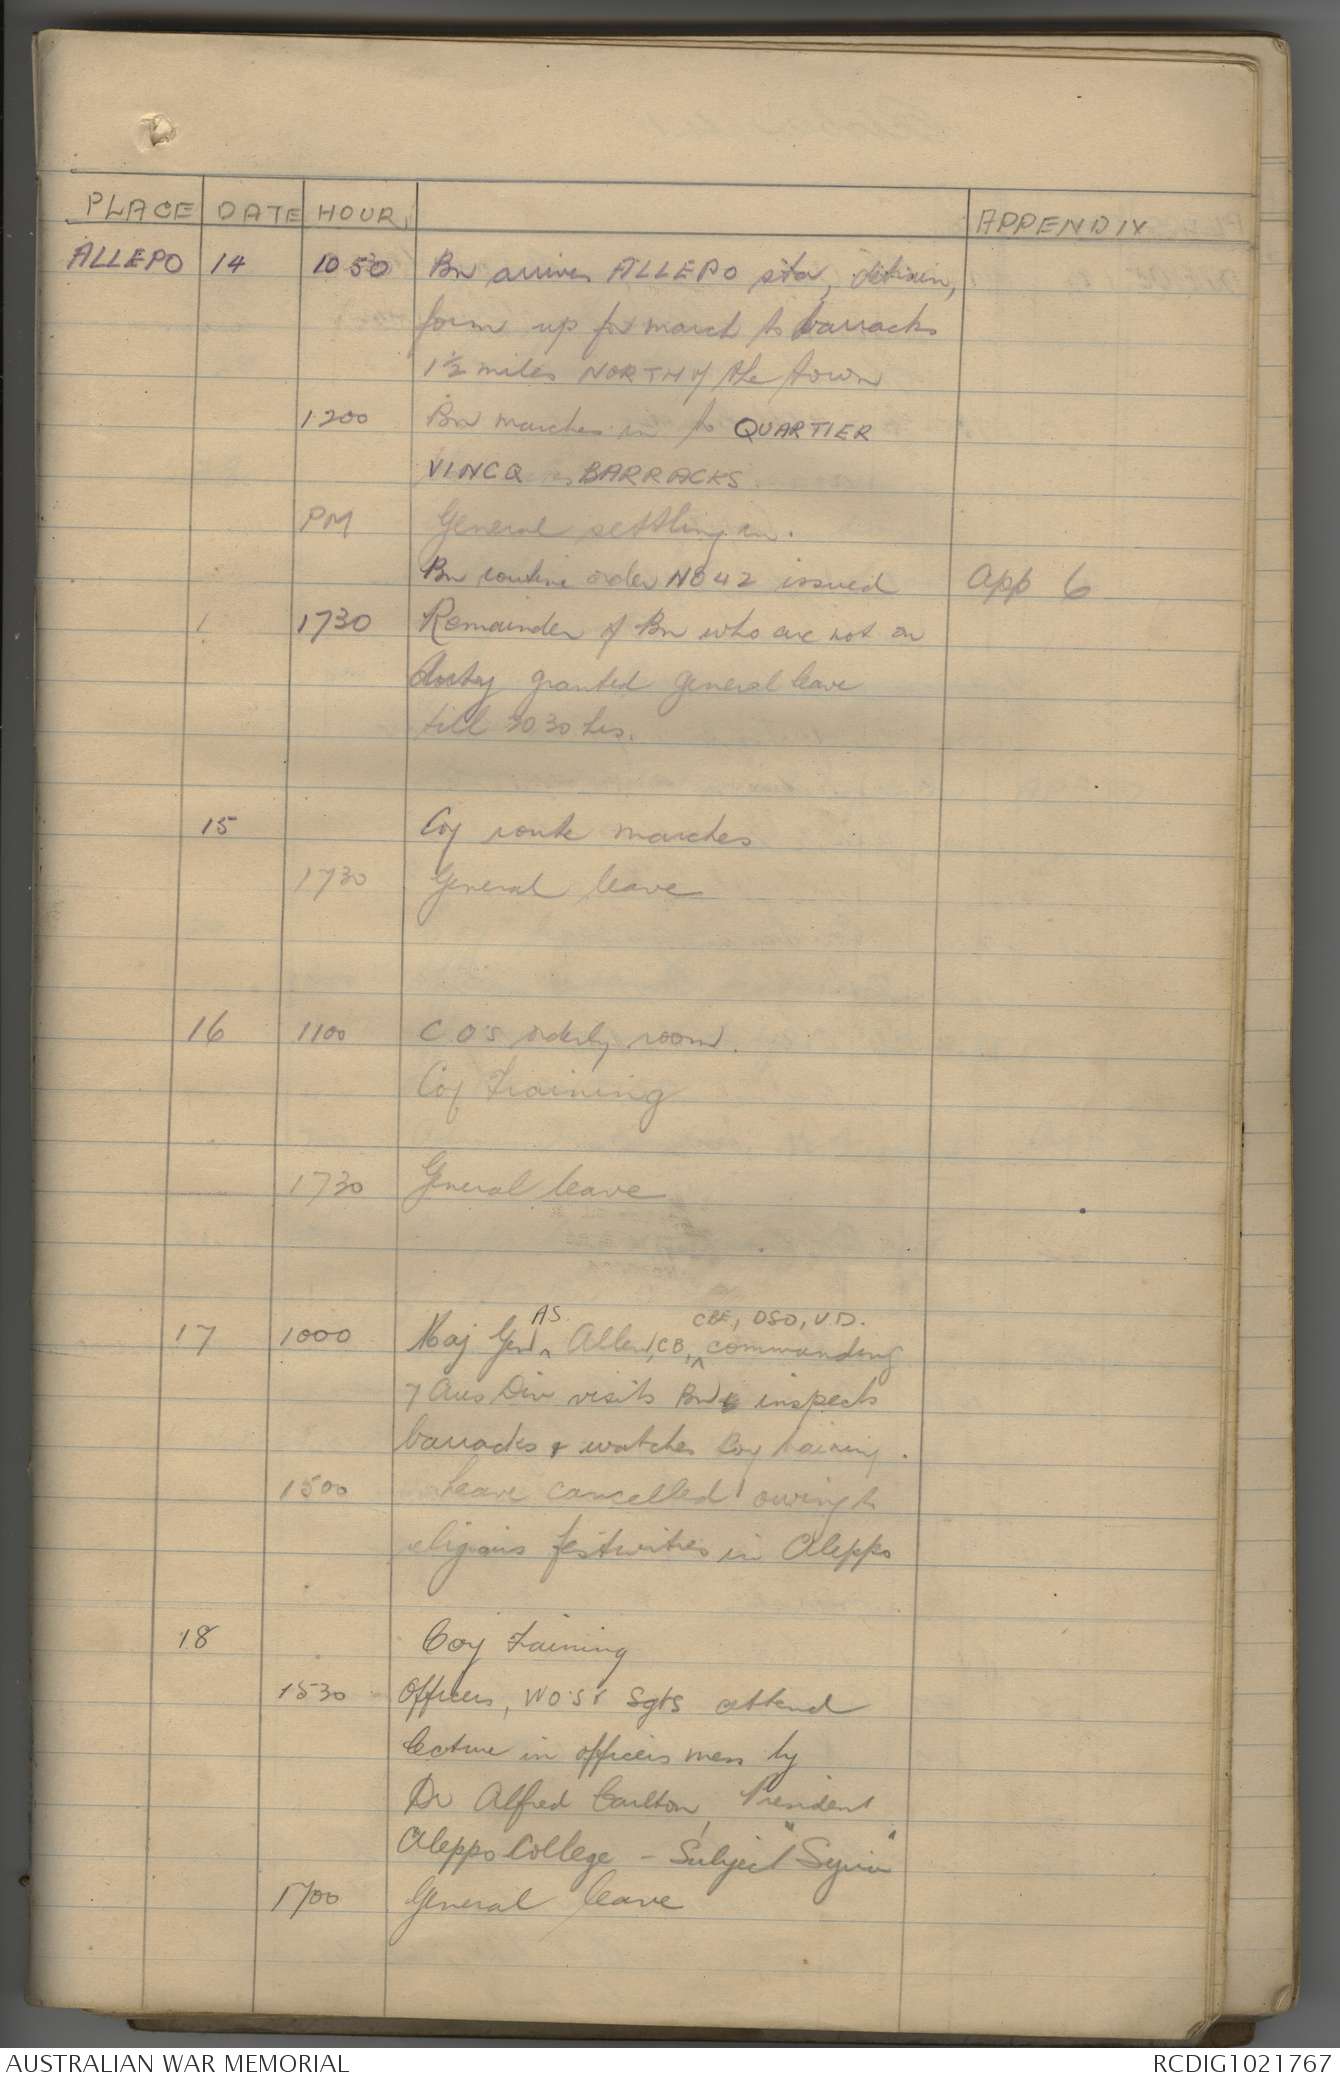 PLACE DATE HOUR APPENDIX
ALLEPO 14 1050 Bn arrives ALLEPO sta, detrain,
form up for march to barracks
1½ miles NORTH of the town
1200 Bn marches in to QUARTIER
VINCQ BARRACKS.
PM General settling in.
Bn routine order No 42 issued App 6
1730 Remainder of Bn who are not on
duty granted general leave
till 2030 hrs.
15 Coy route marches
1730 General leave
16 1100 C.O's orderly room.
Coy Training
1730 General leave
AS. CBE, DSO, V.D.
17 1000 Maj Gen ^ Allen, CB, ^ commanding
7 Aus Div visits Bn inspects
barracks & watches Coy training.
1500 Leave cancelled owing to
religious festivities in Aleppo
18 Coy Training
1530 Officers, WO's & Sgts attend
lecture in officers mess by
Dr Alfred Carlton, President
Aleppo College - Subject "Syria"
1700 General leave
AUSTRALIAN WAR MEMORIAL RCDIG1021767